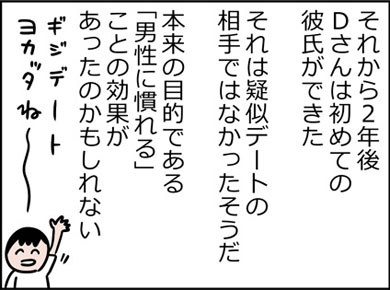 それから2年後
Dさんは初めての
彼氏ができた
それは疑似デートの
相手ではなかったそうだ
本来の目的である
「男性に慣れる」
ことの効果が
あったのかもしれない
ギジデート
ヨカッタね〜